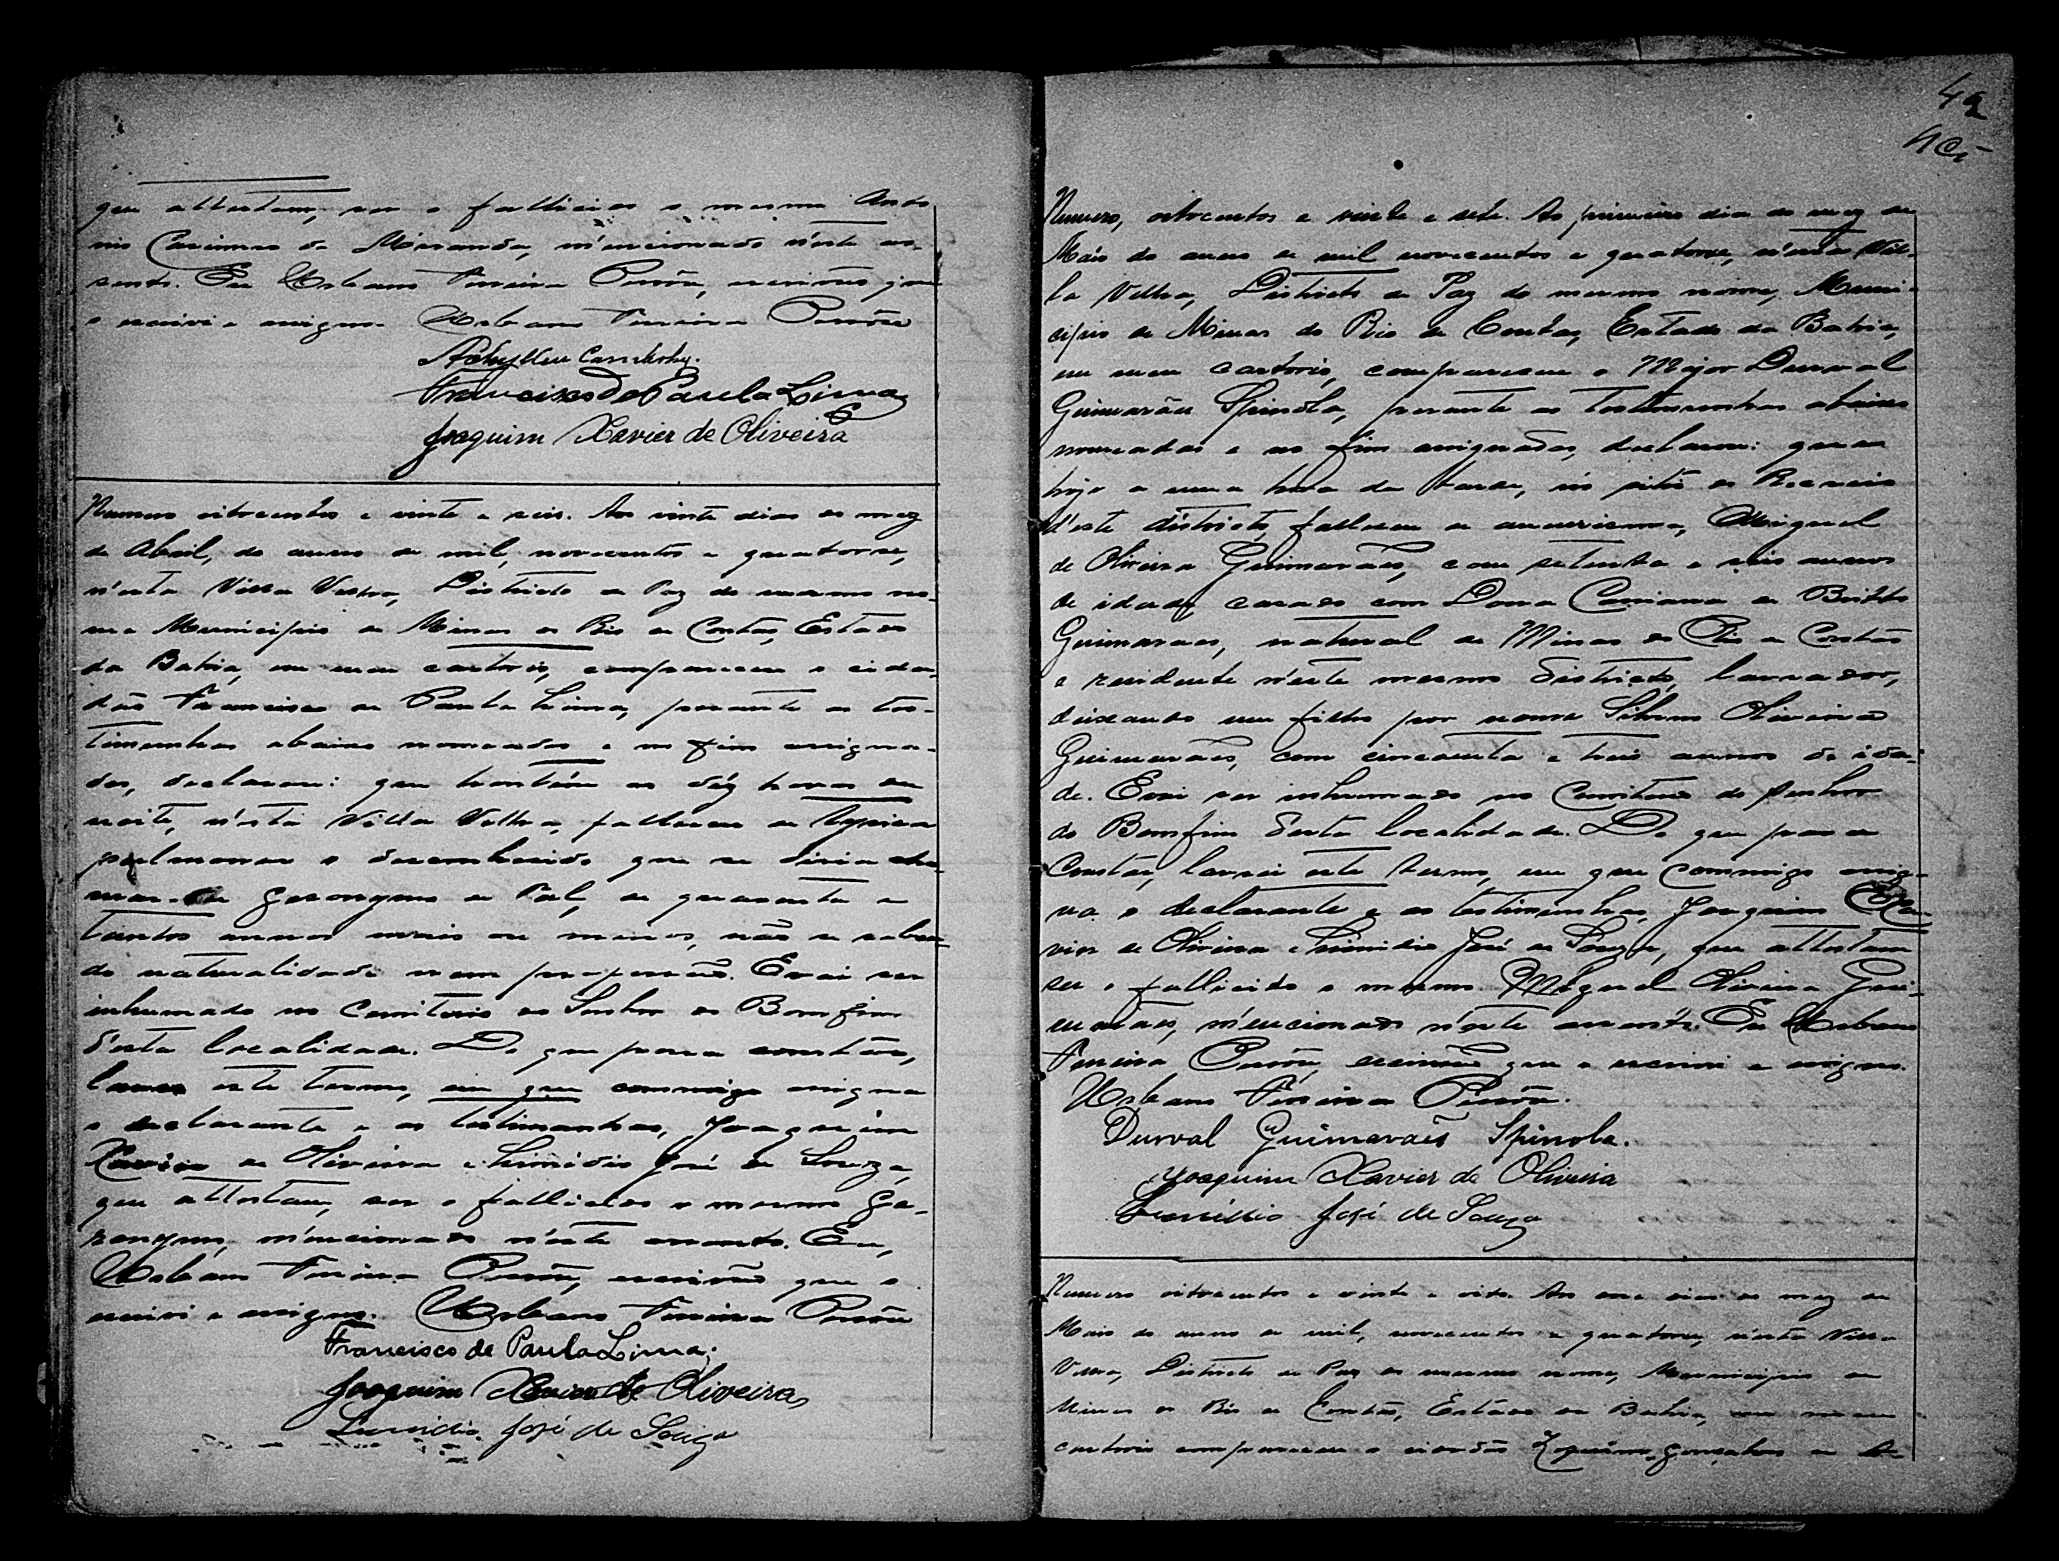 que attestam, ser o fallicido o mesmo Anto
nio Casimiro de Miranda, m'encionado n'este as-
sento. Eu Urbano Pessôa, escrivão que
o escrivi e assigno. Urbano Pessôa
Francisco de Paula Lima
Joaquim Xavier de Oliveira
Numero oitocentos e vinte e seis. Aos vinte dias do mez
de Abril, do anno de mil, novecentos e quatorse,
n'esta Villa Velha, Districto de Paz do mesmo no-
me Municipio de Minas do Rio de Contas, Estado
da Bahia, em meu cartorio, compareceu o cida-
dão Francisco de Paula Lima, perante as tes-
timunhas abaixo nomeadas e no fim assigna-
das, declarou: que hontêm as déz horas da
noite, n'esta Villa Velha, falleceu de
pulmonar o desconhecido que se disia cha-
mar-se Geronymo de Tal, de quarenta e
tantos annos mais ou menos, não se saben-
do naturalidade nem profissão. E vai ser
inhumado no Cemiterio do Senhor do Bomfim
d'esta localidade. Do que para constár,
lavrei este termo, em que commigo assigna
o declarante e as testimunhas, Joaquim
Xavier de Oliveira e Leonidio José de Souza,
que attestam, ser o fallicido o mesmo Ge-
ronymo, m'encionado n'este assento. Eu,
Urbano Pessôa, escrivão que o
escrivi e assigno. Urbano Pessôa
Francisco de Paula Lima.
Joaquim Xavier de Oliveira
Leonidio José de Souza
42
Numero, oitocentos e vinte e sete. Ao primeiro dia do mez de
Maio do anno de mil novecentos e quatorse, n'esta Vil-
la Velha, Districto de Paz do mesmo nome, Muni-
cipio de Minas do Rio de Contas, Estado da Bahia,
em meu cartorio, compareceu o Major Durval
Guimarães Spinola, perante as testimunhas abaixo
nomeadas e no fim assignadas, declarou: que
hoje a uma hora da tarde, no sitio do
d'este districto, falleceu de aneurisma, Miguel
de Oliveira Guimarães, com setenta e seis annos
de idade, casado com Dona de Britto
Guimarães, natural de Minas do Rio de Contas
e residente n'este mesmo districto, lavrador,
deixando um filho por nome Oliveira
Guimarães, com cincoenta e tres annos de ida-
de. E vai ser inhumado no Cemiterio do Senhor
do Bomfim desta localidade. Do que para
Constar, lavrei este termo, em que Commigo assig-
na o declarante e as testimunhas, Joaquim Xa-
vier de Oliveira e Leonidio José de Souza, que attestam
ser o fallicido o mesmo Miguel Oliveira Gui-
marães, m'encionado n'este assento. Eu Urbano
Pessôa, escrivão que o escrivi e assigno.
Urbano Pessôa.
Durval Guimarães Spinola.
Joaquim Xavier de Oliveira
Leonidio José de Souza
Numero oitocentos e vinte e oito. Aos dias do mez de
Maio do anno de mil, novecentos e quatorse, n'esta Villa
Velha, Districto de Paz do mesmo nome, Municipio de
Minas do Rio de Contas, Estado da Bahia, em meu
cartorio compareceu o cidadão Gonçalves de